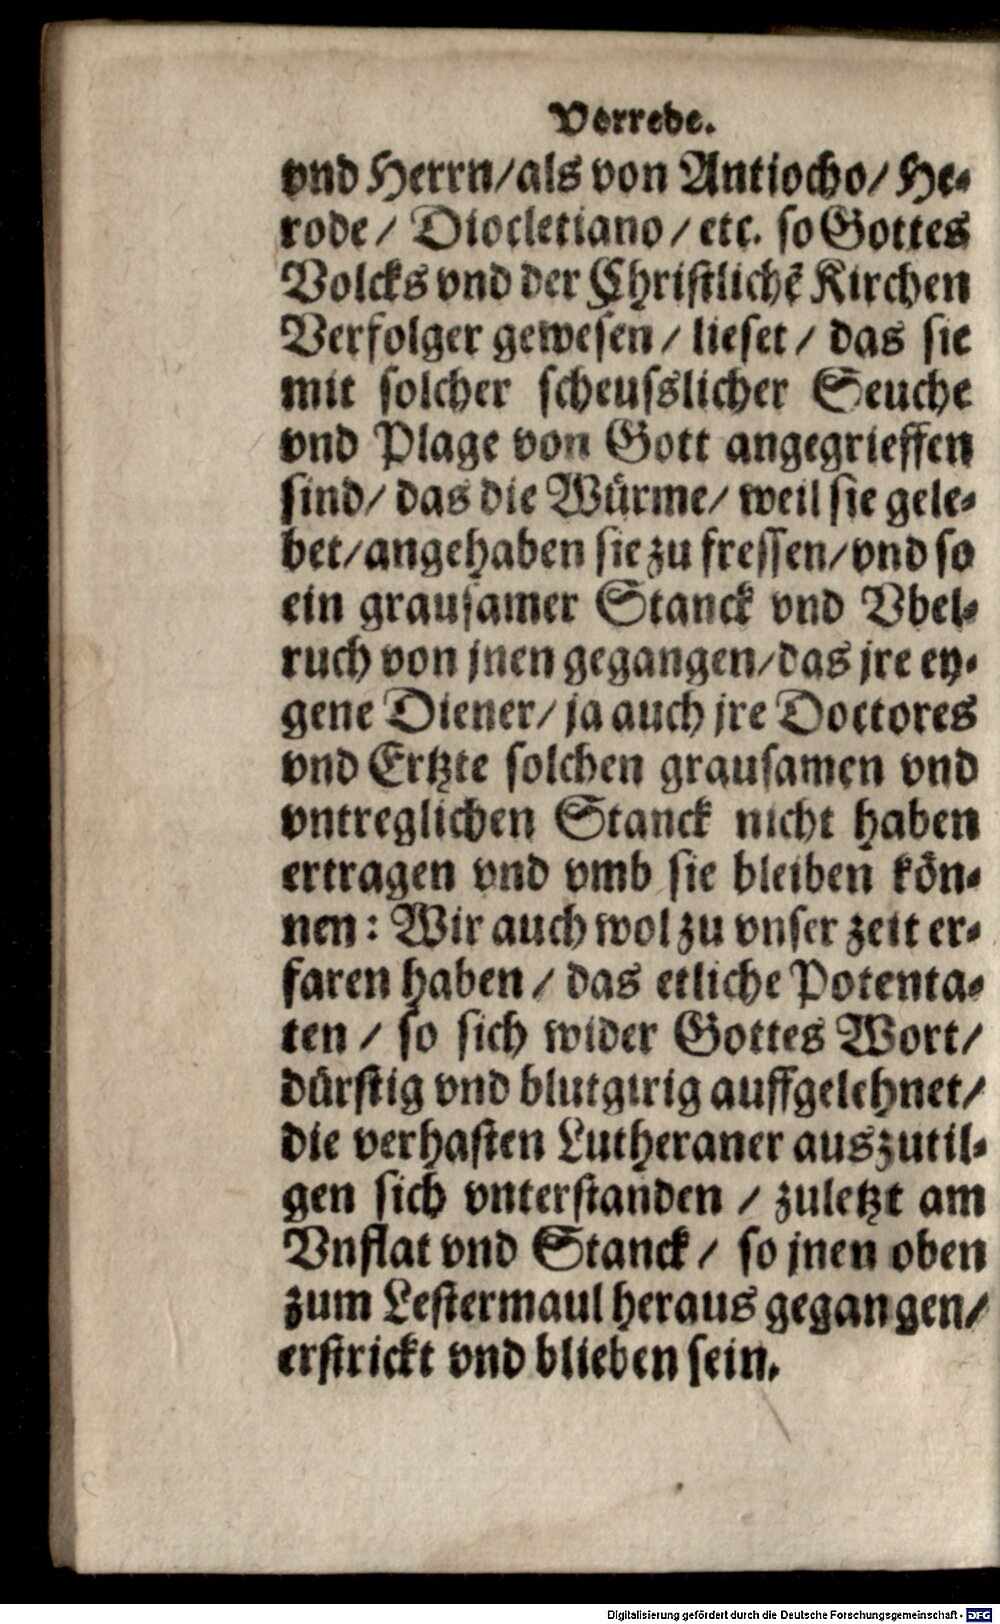 Vorrede.
vnd Herrn/als von Antiocho/ He⸗
rode/ Diocletiano/ etc. so Gottes
Volcks vnd der Christlichẽ Kirchen
Verfolger gewesen/ lieset/ das sie
mit solcher scheusslicher Seuche
vnd Plage von Gott angegrieffen
sind/ das die Würme/ weil sie gele⸗
bet/angehaben sie zu fressen/vnd so
ein grausamer Stanck vnd Vbel⸗
ruch von jnen gegangen/das jre ey⸗
gene Diener/ ja auch jre Doctores
vnd Ertzte solchen grausamen vnd
vntreglichen Stanck nicht haben
ertragen vnd vmb sie bleiben kön⸗
nen: Wir auch wol zu vnser zeit er⸗
faren haben/ das etliche Potenta⸗
ten/ so sich wider Gottes Wort/
dürstig vnd blutgirig auffgelehnet/
die verhasten Lutheraner auszutil⸗
gen sich vnterstanden/ zuletzt am
Vnflat vnd Stanck/ so jnen oben
zum Lestermaul heraus gegangen/
erstrickt vnd blieben sein.
Digitalisierung gefördert durch die Deutsche Forschungsgemeinschaft - DFG